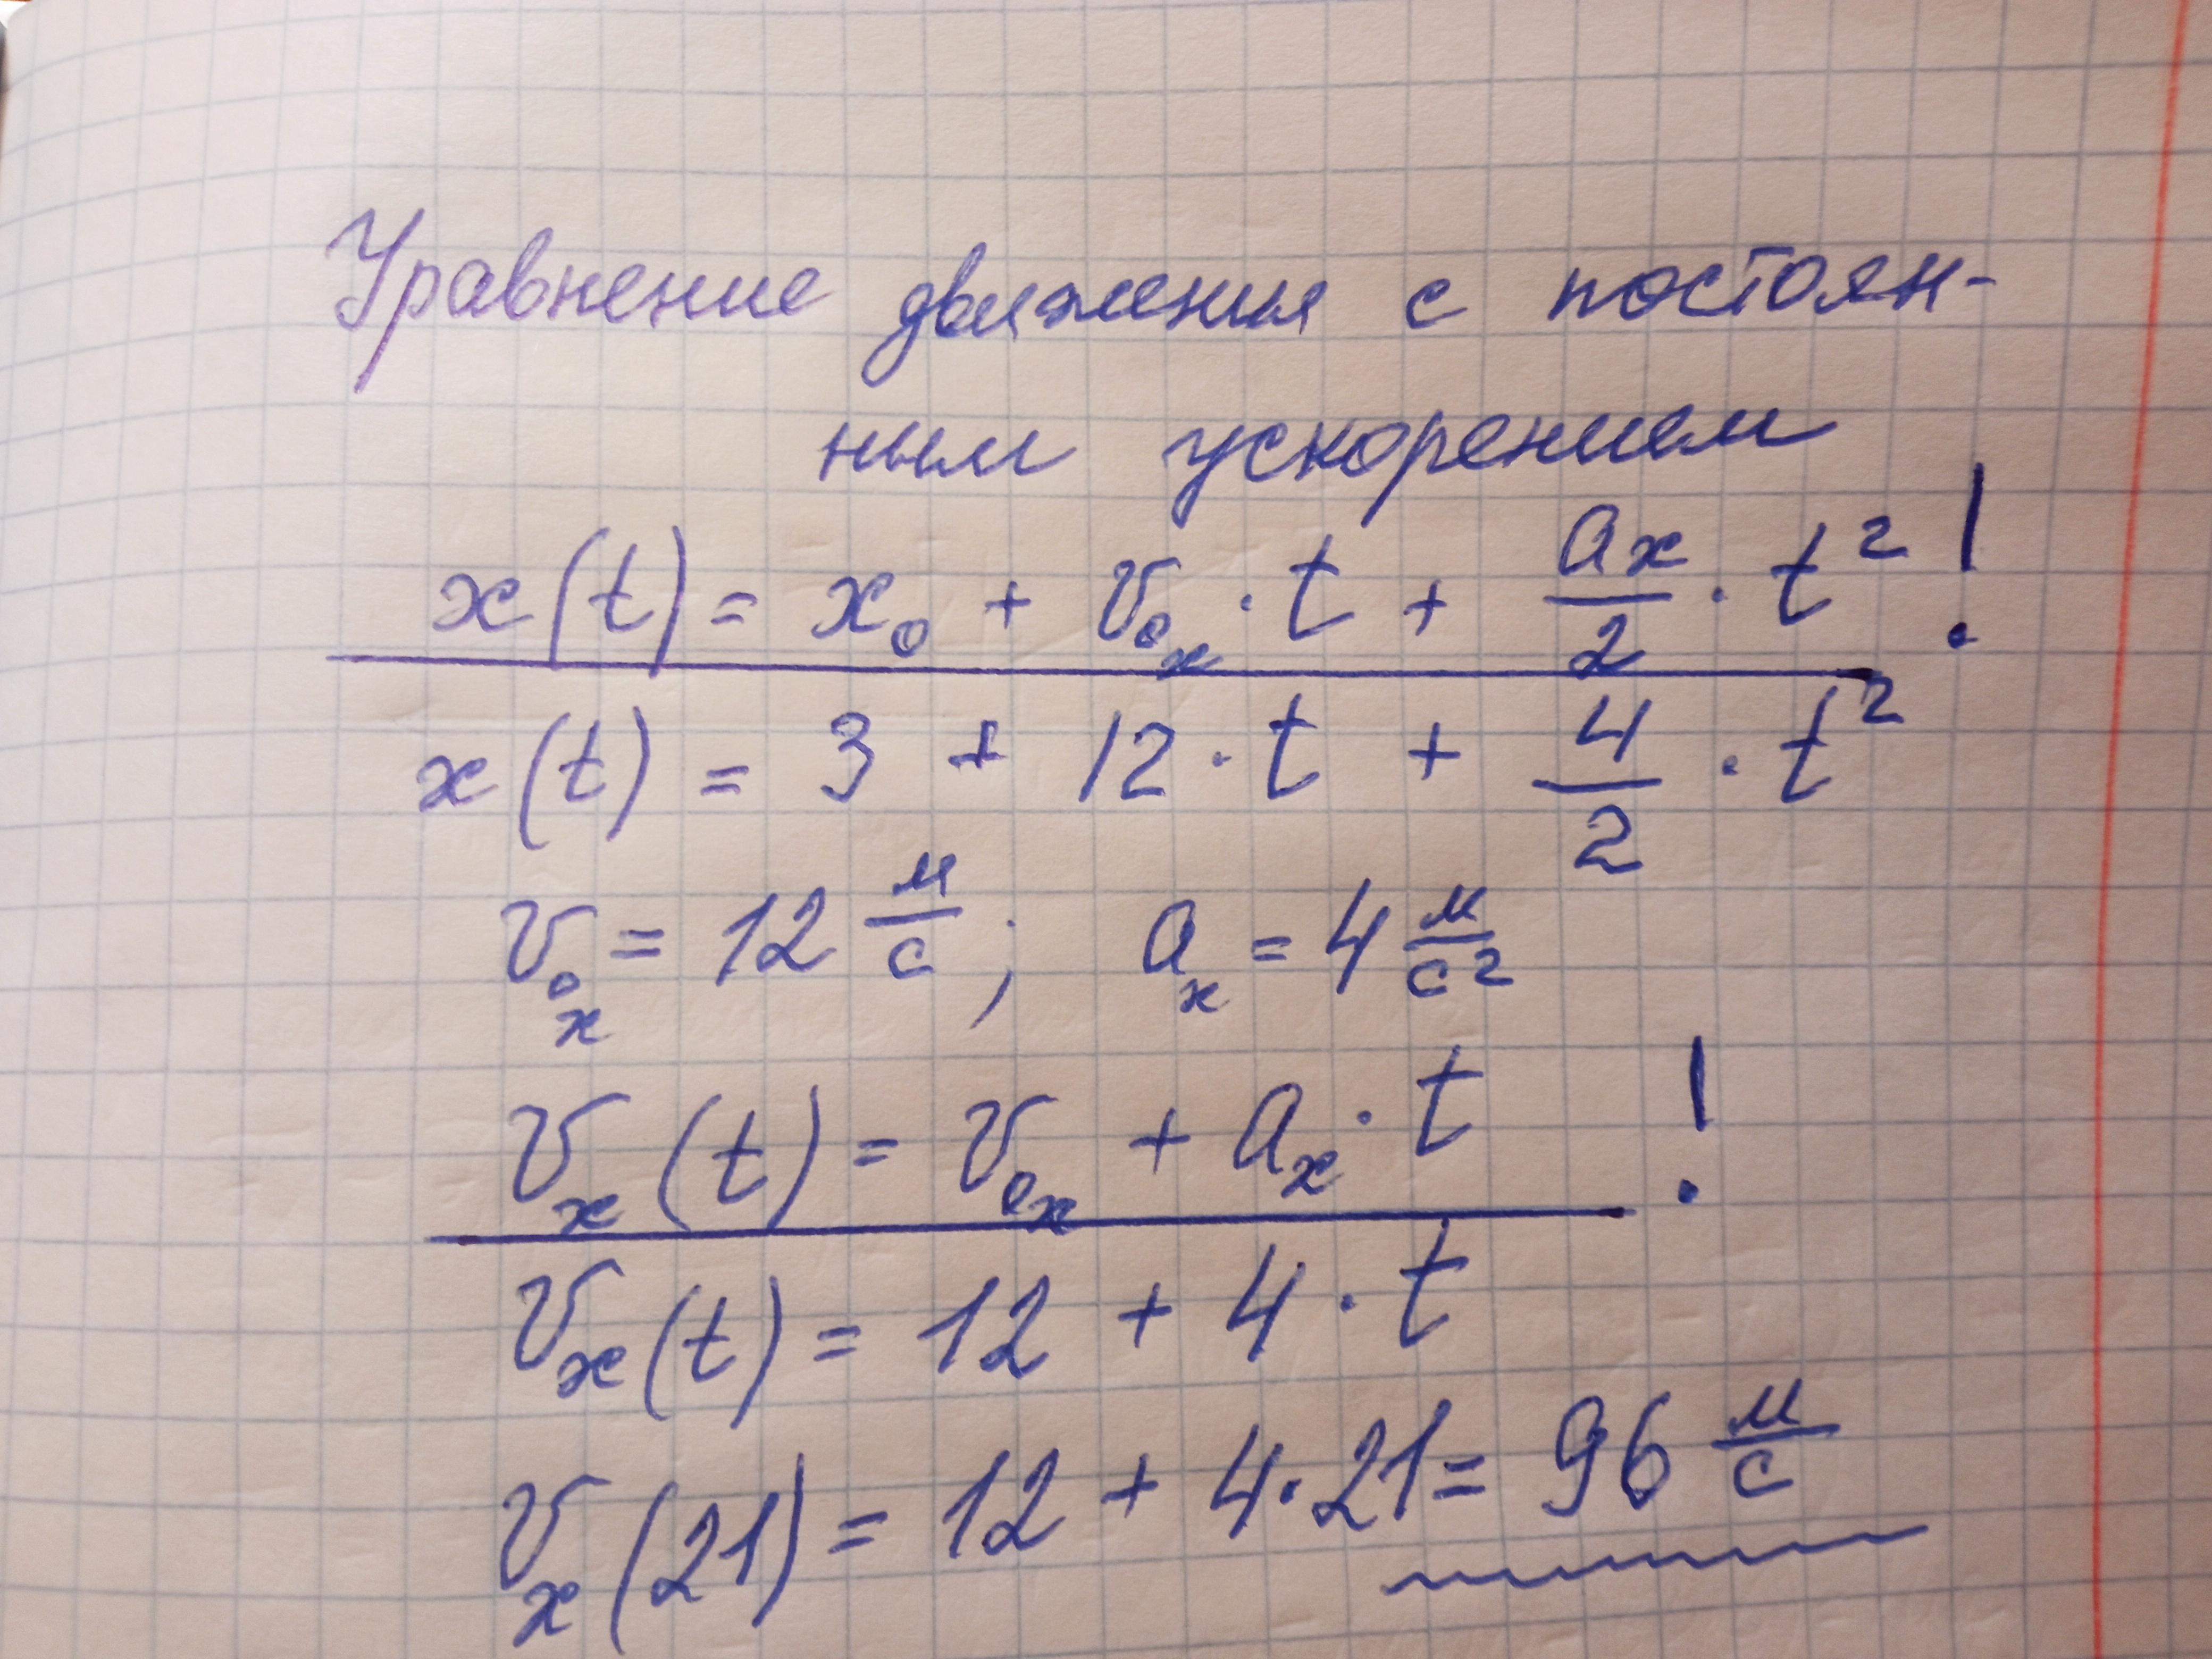 Уравнение движения с постоян-
ным ускорением
x(t) = x₀ + v₀ₓ · t + aₓ/2 · t² !
x(t) = 3 + 12 · t + 4/2 · t²
v₀ₓ = 12 м/с ; aₓ = 4 м/с²
vₓ(t) = v₀ₓ + aₓ · t !
vₓ(t) = 12 + 4 · t
vₓ(21) = 12 + 4 · 21 = 96 м/с